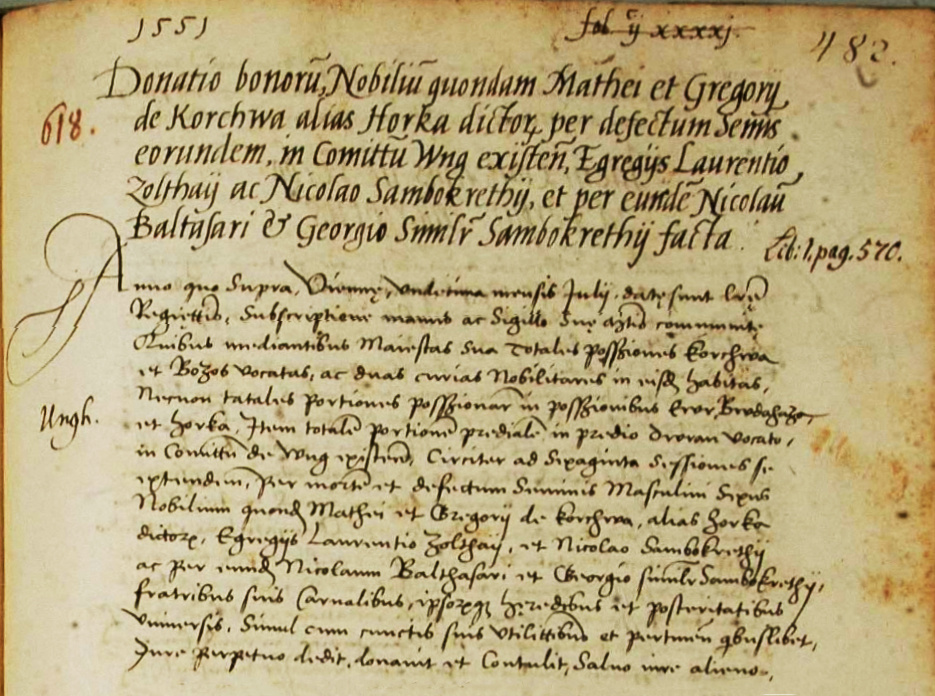 1551
fol. ij xxxxj.
482.
Donatio bonorū, Nobiliū quondam Mathei et Gregorij
618.
de Korchwa alias Horka dictor, per defectum Semīs
eorundem, in Comittū Wng existen, Egregijs Laurentio
Zolthaij ac Nicolao Sambokrethij, et per eundē Nicolaū
Baltasari & Georgio Similr Sambokrethij facta.
Lib: 1. pag. 570.
Anno quo supra, Viennę, undecima mensis Julij, datę sunt lrę
Regię, Subscriptione manus ac Sigillo Suę communitę
Quibus mediantibus Maiestas Sua Totales possiones Korchwa
et Bozos vocatas, ac duas curias Nobilitares in eisd habitas,
Necnon totales portiones possionar in possionibus
Ungh.
et Horka, Item totalē portionē predialē in predio vocato,
in Comittu de Wng existen, Circiter ad sexaginta Sessiones se
extenden, per mortē et defectum Seminis Masculini Sexus
Nobilium quond Mathei et Gregorij de Korchwa, alias Horka
dictor, Egregijs Laurentio Zolthaij, et Nicolao Sambokrethij
ac per eund Nicolaum Balthasari et Georgio similr Sambokrethij,
fratribus suis Carnalibus, ipsorqz hęredibus et posteritatibus
vniversis, Simul cum cunctis suis Vtilittibus et pertinen qbuslibet,
Jure perpetuo dedit, donavit et Contulit, Salvo iure alieno.